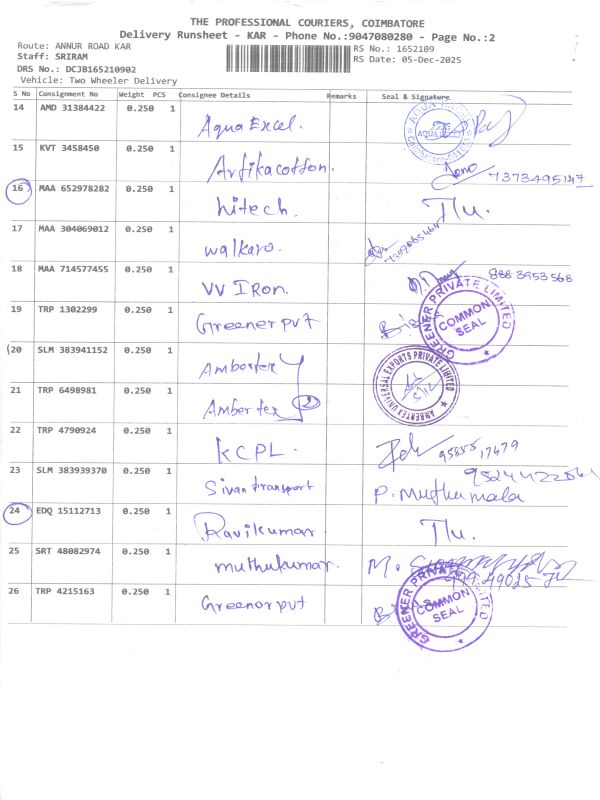 THE PROFESSIONAL COURIERS, COIMBATORE
Delivery Runsheet - KAR - Phone No.:9047080280 - Page No.:2
Route: ANNUR ROAD KAR RS No.: 1652109
Staff: SRIRAM RS Date: 05-Dec-2025
DRS No.: DCJB165210902
Vehicle: Two Wheeler Delivery
S No Consignment No Weight PCS Consignee Details Remarks Seal & Signature
14 AMD 31384422 0.250 1 Aqua Excel.
15 KVT 3458450 0.250 1 Arfikacotton. 7373495147
16 MAA 652978282 0.250 1 hitech. Tlu.
17 MAA 304069012 0.250 1 walkaro.
18 MAA 714577455 0.250 1 VV IRon. 8883953568
19 TRP 1302299 0.250 1 Greener pvt GREENER PRIVATE LIMITED COMMON SEAL
20 SLM 383941152 0.250 1 Ambertex
21 TRP 6498981 0.250 1 Ambertex 2 AMBERTEX UNIVERSAL EXPORTS PRIVATE LIMITED
22 TRP 4790924 0.250 1 KCPL.
23 SLM 383939370 0.250 1 Sivan transport P. Muthumala
24 EDQ 15112713 0.250 1 Ravikumar Tlu.
25 SRT 48082974 0.250 1 muthukumar.
26 TRP 4215163 0.250 1 Greener pvt GREENER PRIVATE LIMITED COMMON SEAL